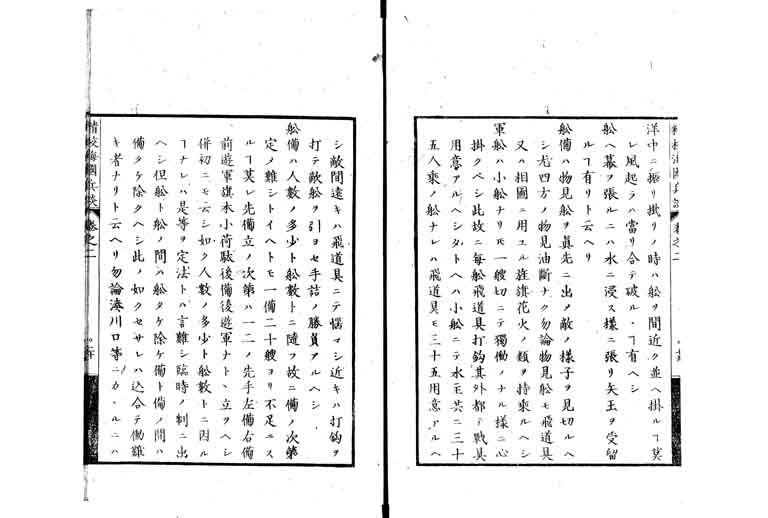 洋中ニ振リ掛リノ時ハ舩ヲ間近ク並ヘ掛ルヿ莫
レ風起ラハ當リ合テ破ルヽヿ有ヘシ
舩ヘ幕ヲ張ルニハ水ニ浸ス様ニ張リ矢玉ヲ受留
ルヿ有リト云ヘリ
舩備ハ物見舩ヲ眞先ニ出ノ敵ノ様子ヲ見切ルヘ
シ尤四方ノ物見油斷ナク勿論物見舩モ飛道具
又ハ相圖ニ用ユル旌旗花火ノ類ヲ持乗ルヘシ
軍舩ハ小舩ナリモ一艘切ニテ獨働ノナル様ニ心
掛クベシ此故ニ毎舩飛道具打鈎其外都テ戰具
用意アルヘシタトヘハ小舩ニテ水主共ニ三十
五人乗ノ舩ナレハ飛道具モ三十五用意アルヘ
シ敵間遠キハ飛道具ニテ惱マシ近キハ打鈎ヲ
打テ敵舩ヲ引ヨセ手詰ノ勝負アルヘシ
舩備ハ人數ノ多少ト舩數トニ隨フ故ニ備ノ次第
定メ難シトイヘトモ一備二十艘ヨリ不足ニス
ルヿ莫レ先備立ノ次第ハ一二ノ先手左備右備
前遊軍旗本小荷駄後備後遊軍ナトヽ立ヲヘシ
併初ニモ云シ如ク人數ノ多少ト舩數トニ因ル
ヿナレハ是等ヲ定法トハ言難シ臨時ノ制ニ出
ヘシ但舩ト舩ノ間ハ舩タケ除ケ備ト備ノ間ハ
備タケ除クヘシ此ノ如クセサレハ込合テ働難
キ者ナリト云ヘリ勿論湊川口等ニカヽルニハ
精校海國兵談
卷之二